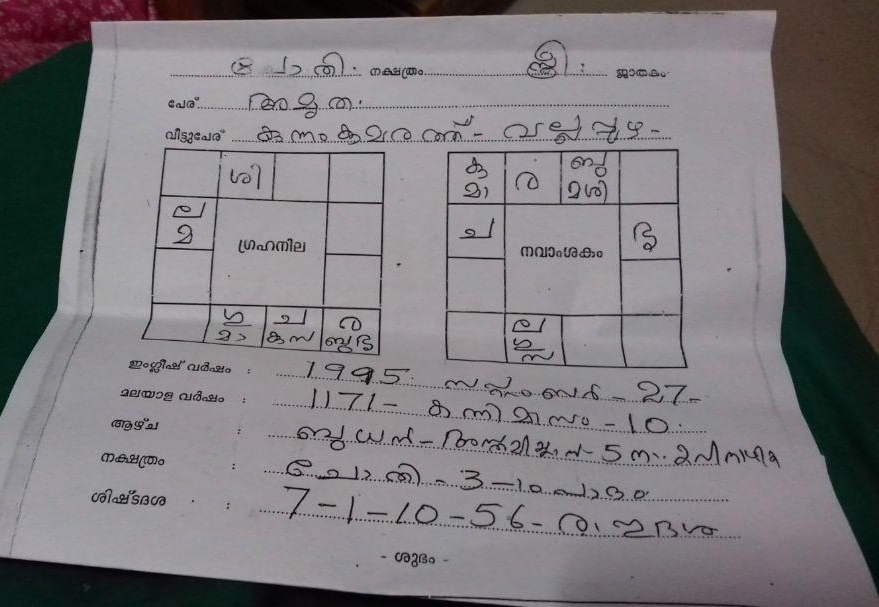 ചോതി. നക്ഷത്രം സ്ത്രീ : ജാതകം
പേര് അമൃത.
വീട്ടുപേര് കുന്നംകുമരത്ത് - വല്ലപ്പുഴ -
ശി
ല
മ
ഗ്രഹനില
ഗു
മാ
ച
കുസ
ര
ബുഭൃ
കു
മാ
ര
ബു
മശി
ച
നവാംശകം
ഭൃ
ല
ഗു
സ
ഇംഗ്ലീഷ് വർഷം : 1995 സപ്തംബർ - 27 -
മലയാള വർഷം : 1171 - കന്നിമാസം - 10.
ആഴ്ച : ബുധൻ - 5
നക്ഷത്രം : ചോതി - 3 - ാം പാദം
ശിഷ്ടദശ : 7 - 1 - 10 - 56 - രാഹുദശ
- ശുഭം -